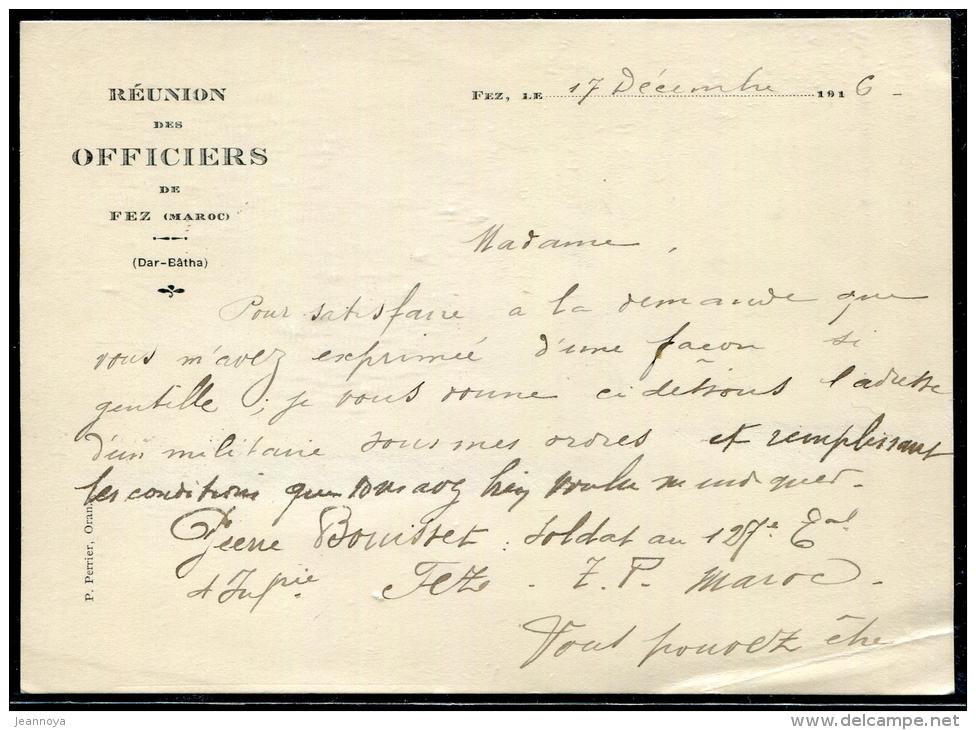 RÉUNION
DES
OFFICIERS
DE
FEZ (MAROC)
(Dar-Bâtha)
FEZ, LE 17 Décembre 1916 -
Madame,
Pour satisfaire à la demande que
vous m'avez exprimée d'une façon si
gentille; je vous donne ci dessous l'adresse
d'un militaire sous mes ordres et remplissant
les conditions que vous avez bien voulu m'indiquer.
Pierre Bouisset : soldat au
d'Infrie Fez - T. P. Maroc -
Vous pouvez être
P. Perrier, Oran
jeannoya
www.delcampe.net